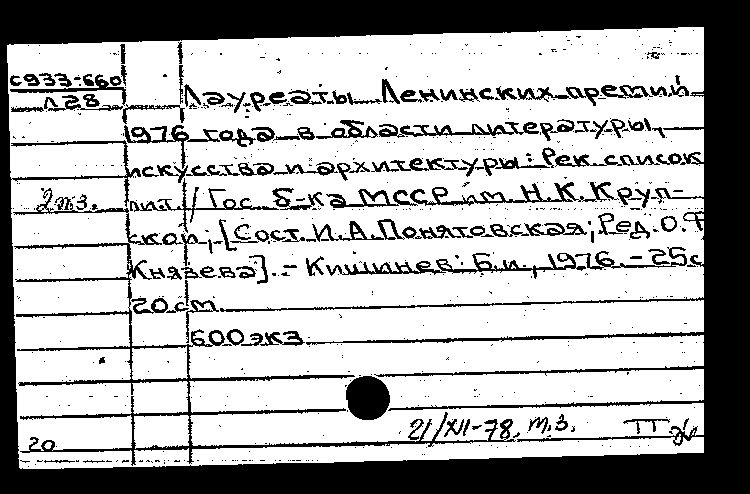 С933-660
Л28
Лауреаты Ленинских премий
1976 года в области литературы,
искусства и архитектуры: Рек. список
2экз. лит. / Гос. б-ка МССР им. Н.К. Круп-
ской; [Сост. И.А. Понятовская; Ред. О.Ф
Князева]. - Кишинев: Б.и., 1976. - 25с
20 см.
600 экз.
21/XII-78. т.з.
20